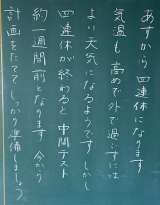 あすから四連休になります
気温も高めで外で過ごすには
よい天気になるようです。しかし
四連休が終わると中間テスト
約一週間前となります 今から
計画をたててしっかり準備しましょう